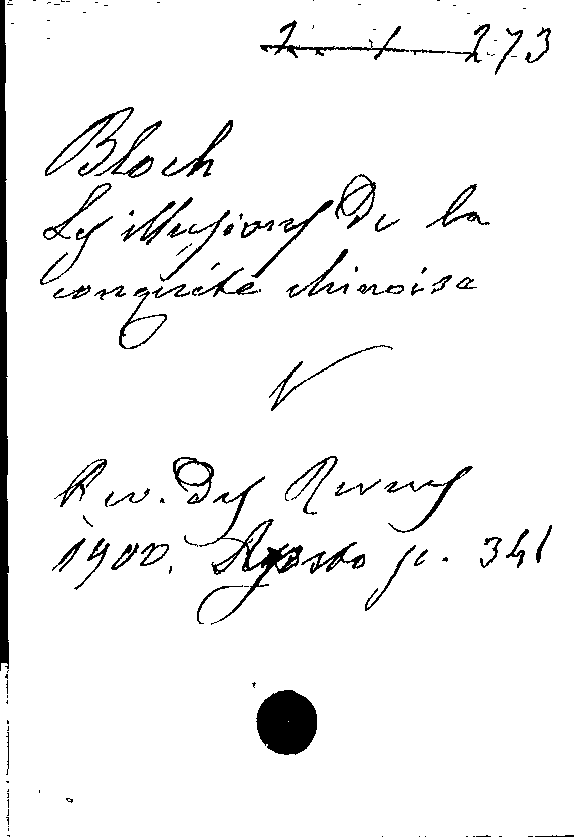 2. 1. 273
Bloch
Les illusions de la
conquête chinoise
V
Rev. des Revues
1900. Agosto p. 341